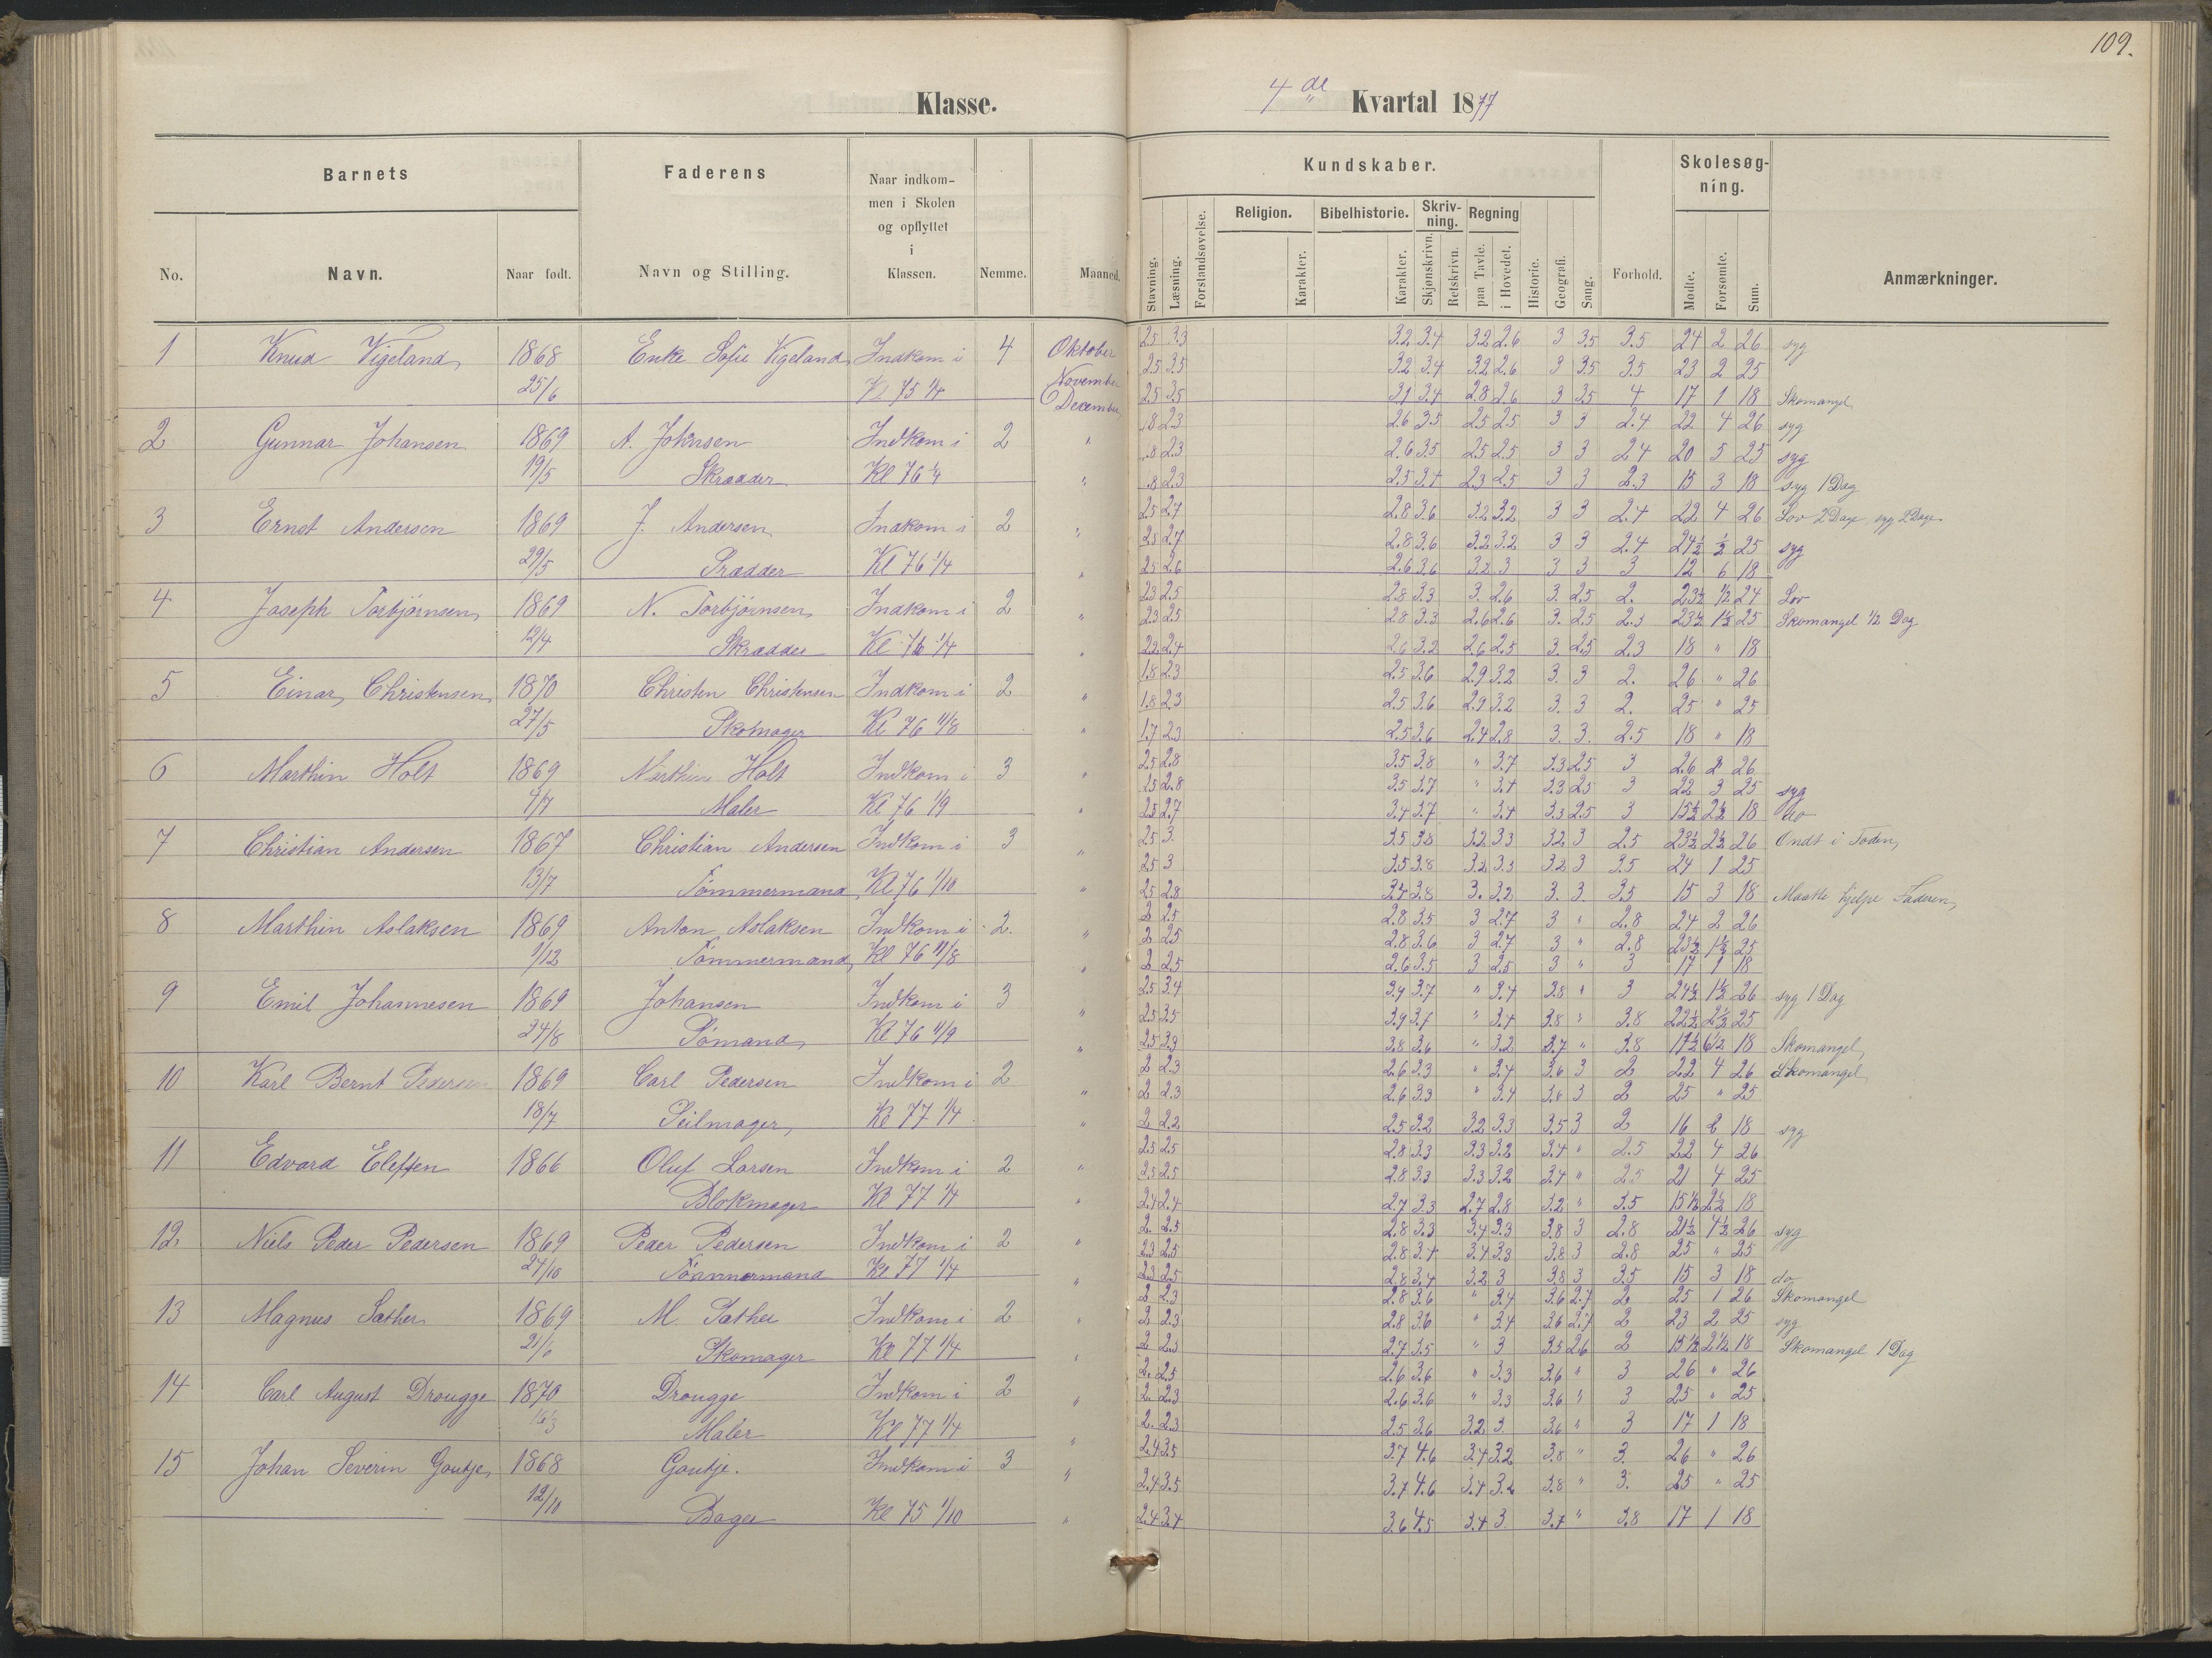 109.
Klasse. 4de Kvartal 1877
Barnets Faderens Naar indkommen i Skolen og opflyttet i Klassen. Nemme. Maaned. Kundskaber. Forhold. Skolesøgning. Anmærkninger.
No. Navn. Naar født. Navn og Stilling. Stavning. Læsning. Forstandsøvelse. Religion. Karakter. Bibelhistorie. Karakter. Skrivning. Skjønskrivn. Retskrivn. Regning paa Tavle. i Hovedet. Historie. Geografi. Sang. Mødte. Forsømte. Sum.
1 Knud Vigeland 1868 Enke Sofie Vigeland Indkom i 4 Oktober 2.5 3.3 3.2 3.4 3.2 2.6 3 3.5 3.5 24 2 26 syg
25/6 Kl 75 1/4 November 2.5 3.5 3.2 3.4 3.2 2.6 3 3.5 3.5 23 2 25
December 2.5 3.5 3.1 3.4 2.8 2.6 3 3.5 4 17 1 18 Skomangel
2 Gunnar Johansen 1869 A. Johnsen Indkom i 2 " .8 2.3 2.6 3.5 2.5 2.5 3 3 2.4 22 4 26 syg
19/5 Skrædder Kl 76 1/4 .8 2.3 2.6 3.5 2.5 2.5 3 3 2.4 20 5 25 syg
" .8 2.3 2.3 2.5 3 3 2.3 15 3 18 syg 1 Dag
3 Ernst Andersen 1869 J. Andersen Indkom i 2 " 2.5 2.7 2.8 3.6 3.2 3.2 3 3 2.4 22 4 26 Lov 2 Dage syg 2 Dage
29/5 Skrædder Kl 76 1/4 2.7 2.8 3.6 3.2 3.2 3 3 2.4 24½ ½ 25 syg
" 2.5 2.6 2.6 3.6 3.2 3 3 3 3 12 6 18
4 Joseph Torbjørnsen 1869 N. Torbjørnsen Indkom i 2 " 2.3 2.5 2.8 3.3 3. 2.6 3. 2.5 2. 23½ ½ 24 Lov
12/4 Skrædder Kl 76 1/4 2.3 2.5 2.8 3.3 2.6 2.6 3. 2.5 2.3 23½ 1½ 25 Skomangel 1/2 Dag
" 2.2 2.4 2.6 3.2 2.6 2.5 3. 2.5 2.3 18 " 18
5 Einar Christensen 1870 Christen Christensen Indkom i 2 " 1.8 2.3 2.5 3.6 2.9 3.2 3. 3 2. 26 " 26
27/5 Skomager Kl 76 11/8 1.8 2.3 2.5 3.6 2.9 3.2 3. 3 2. 25 " 25
" 1.7 2.3 2.5 3.6 2.4 2.8 3. 3. 2.5 18 " 18
6 Marthin Holt 1869 Holt Indkom i 3 " 2.5 2.8 3.5 3.8 " 3.7 3.3 2.5 3 26 26
4/7 Maler Kl 76 1/9 2.5 2.8 3.5 3.7 " 3.4 3.3 2.5 3 22 3 25 syg
" 2.5 2.7 3.4 3.7 " 3.4 3.3 2.5 3 15½ 2½ 18 do
7 Christian Andersen 1867 Christian Andersen Indkom i 3 " 2.5 3. 3.5 3.8 3.2 3.3 3.2 3 2.5 23½ 2½ 26 Ondt i Foden
13/7 Tømmermand Kl 76 1/10 " 2.5 3 3.5 3.8 3.2 3.3 3.2 3 3.5 24 1 25
2.5 2.8 3.4 3.8 3. 3.2 3. 3. 3.5 15 3 18 Maatte hjelpe Faderen
8 Marthin Aslaksen 1869 Anton Aslaksen Indkom i 2. " 2 2.5 2.8 3.5 3 2.7 3 " 2.8 24 2 26
1/12 Tømmermand Kl 76 11/8 2 2.5 2.8 3.6 3 2.7 3 " 2.8 23½ 1½ 25
" 2 2.5 2.6 3.5 3 2.5 3 " 3 17 1 18
9 Emil Johannesen 1869 Johansen Indkom i 3 " 2.5 3.4 3.9 3.7 " 3.4 3.8 " 3 24½ 1½ 26 syg 1 Dag
24/8 Sømand Kl 76 11/9 2.5 3.5 3.9 3.7 " 3.4 3.8 " 3.8 22½ 2½ 25
" 2.5 3.3 3.8 3.6 " 3.2 3.7 " 3.8 17½ 6½ 18 Skomangel
10 Karl Bernt Pedersen 1869 Carl Pedersen Indkom i 2 2 2.3 2.6 2.3 " 3.4 3.6 3 2 22 4 26 Skomangel
18/7 Seilmager Kl 77 1/4 " 2 2.3 2.6 3.3 " 3.4 3.8 3 2 25 " 25
" 2 2.2 2.5 3.2 3.2 3.3 3.5 3 2 16 2 18 syg
11 Edvard Eleffen 1866 Oluf Larsen Indkom i 2 " 2.5 2.5 2.8 3.3 3.3 3.2 3.4 " 2.5 22 4 26
Blokmager Kl 77 1/4 2.5 2.5 2.8 3.3 3.3 3.2 3.4 " 2.5 21 4 25
" 2.4 2.4 2.7 3.3 2.7 2.8 3.2 " 3.5 15½ 2½ 18
12 Niels Peder Pedersen 1869 Peder Pedersen Indkom i 2 " 2. 2.5 2.8 3.3 3.4 3.3 3.8 3 2.8 21½ 4½ 26 syg
24/10 Tømmermand Kl 77 1/4 2.3 2.5 2.8 3.4 3.4 3.3 3.8 3 2.8 25 " 25
" 2.3 2.5 2.8 3.4 3.2 3 3.8 3 3.5 15 3 18 do
13 Magnus Sather 1869 M. Sather Indkom i 2 2 2.3 2.8 3.6 " 3.4 3.6 2.7 2 25 1 26 Skomangel
21/6 Skomager Kl 77 1/4 " 2 2.3 2.8 3.6 " 3.4 3.6 2.7 2 23 2 25 syg
" 2 2.3 2.7 3.5 " 3 3.5 2.6 2 15½ 2½ 18 Skomangel 1 Dag
14 Carl August Drougge 1870 Drougge Indkom i 2 2. 2.5 2.6 3.6 " 3.3 3.6 " 3 26 " 26
16/3 Maler Kl 77 1/4 " 2. 2.3 2.6 3.6 " 3.3 3.6 " 3 25 " 25
" 2. 2.3 2.5 3.6 3.2 3 3.6 " 3 17 1 18
15 Johan Severin Goutje 1868 Goutje. Indkom i 3 2.4 3.5 3.7 4.6 3.4 3.2 3.8 " 3. 26 " 26
12/10 Bager Kl 75 1/10 " 2.4 3.5 3.7 4.6 3.4 3.2 3.8 " 3. 25 " 25
" 2.4 3.4 3.6 4.5 3.4 3 3.7 " 3.8 17 1 18